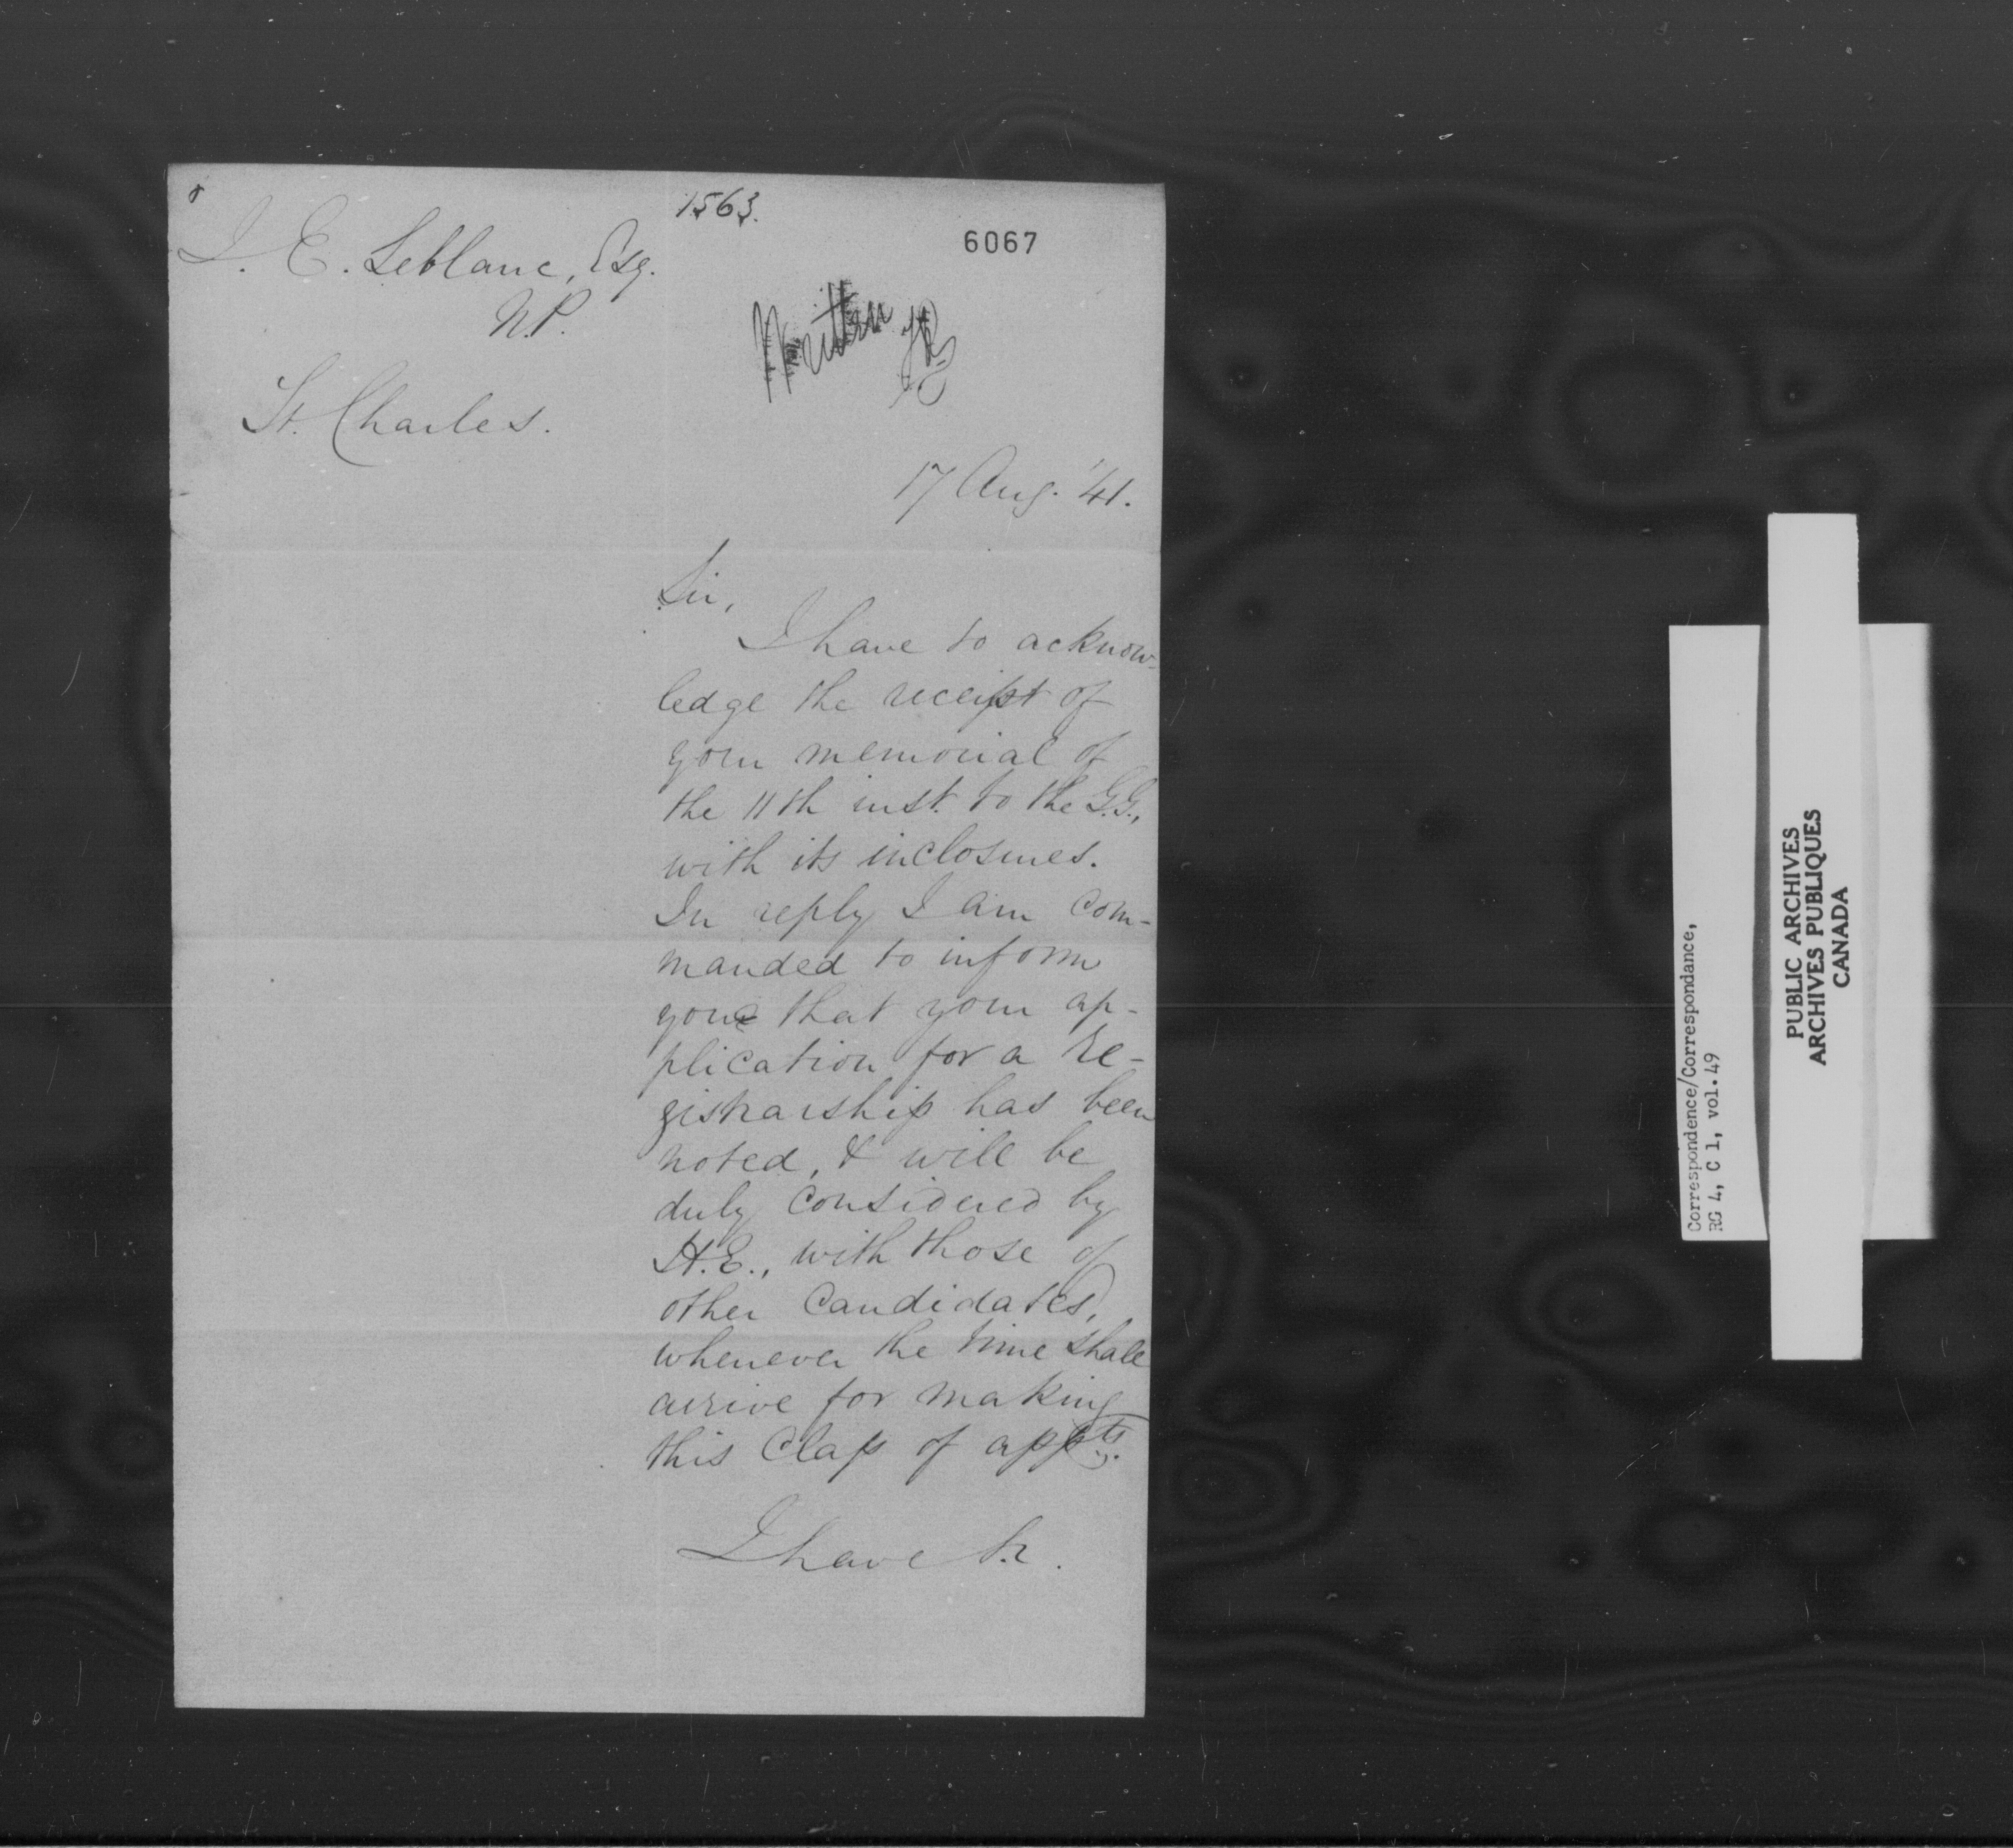 1563.
6067
J. E. Leblanc, Esq.
N.P.
St. Charles.
Written
17 Aug. '41.
Sir,
I have to acknow-
ledge the receipt of
your memorial of
the 11th inst. to the G.G.,
with its inclosures.
In reply I am com-
manded to inform
you that your ap-
plication for a Re-
gistrarship has been
noted, & will be
duly considered by
H.E., with those of
other Candidates,
whenever the time shall
arrive for making
this Class of appts.
I have &c.
Correspondence/Correspondance,
RG 4, C 1, vol.49
PUBLIC ARCHIVES
ARCHIVES PUBLIQUES
CANADA